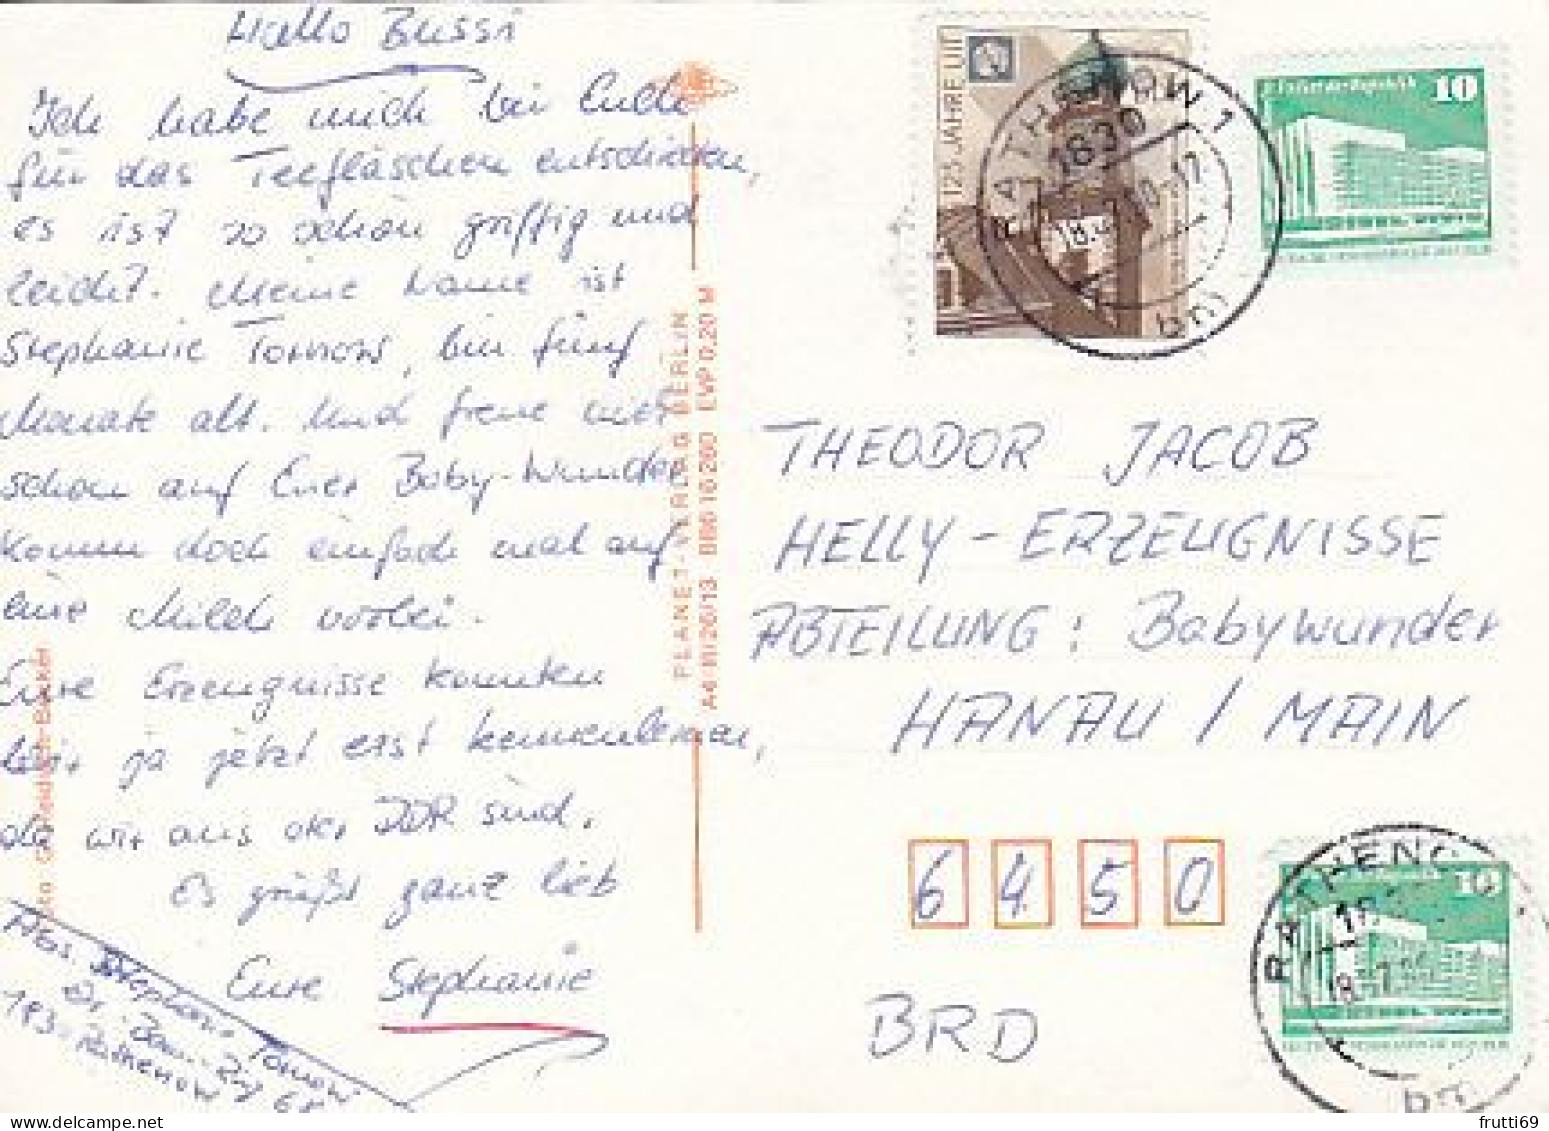 Hallo Bussi
Ich habe mich bei Euch
für das Teefläschen entschieden,
es ist so schön griffig und
leicht. Meine Name ist
Stephanie Tornow, bin fünf
Monate alt. Und freue mich
schon auf Euer Baby-Wunder
Komm doch einfach mal auf
eine Milch vorbei.
Eure Erzeugnisse konnten
wir ja jetzt erst kennenlernen,
da wir aus der DDR sind.
Es grüßt ganz lieb
Eure Stephanie
Abs. Stephanie Tornow
Rathenow
PLANET-VERLAG BERLIN
EVP 0,20 M
125 JAHRE
RATHENOW 1
1830
bm
10
THEODOR JACOB
HELLY-ERZEUGNISSE
ABTEILUNG: Babywunder
HANAU / MAIN
6450
BRD
10
bm
frutti69